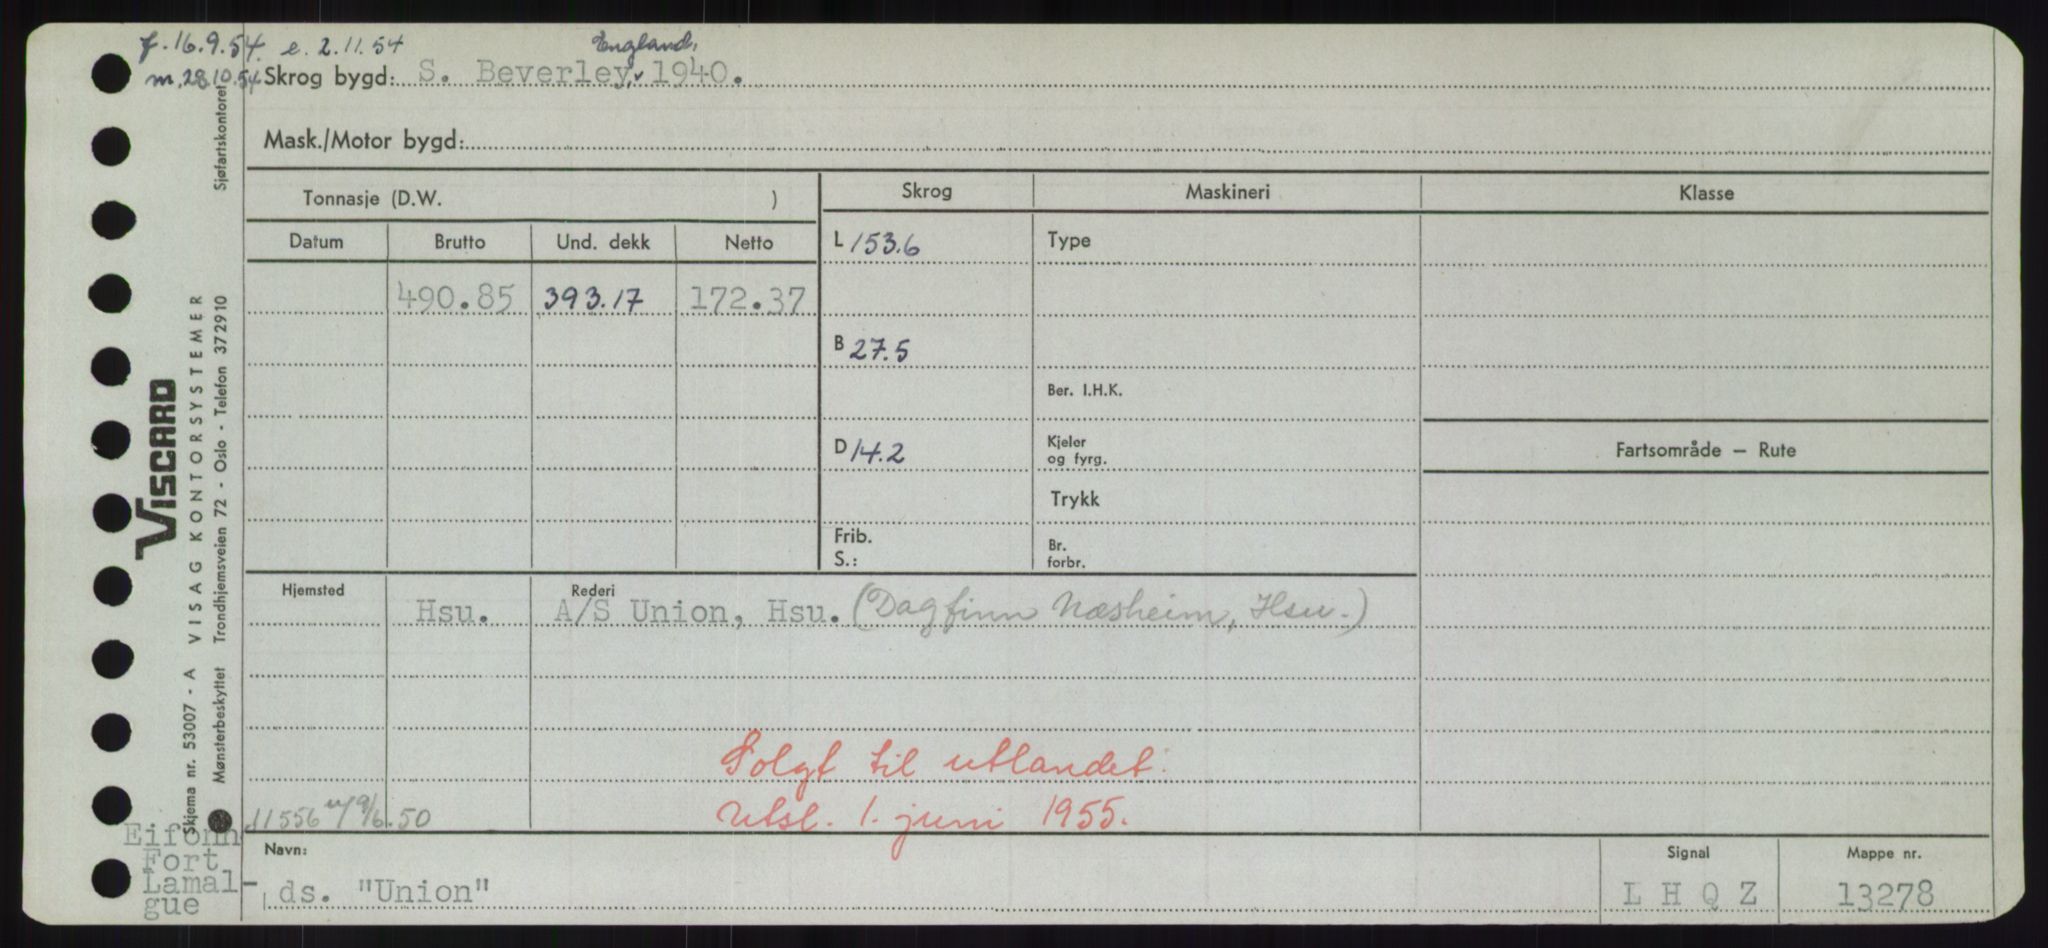 f. 16.9.54. e. 2.11.54
m. 28.10.54
England,
Skrog bygd: S. Beverley, 1940.
Mask./Motor bygd:
Tonnasje (D.W. )
Skrog Maskineri Klasse
Datum Brutto Und. dekk Netto
L 153.6 Type
490.85 393.17 172.37
B 27.5
Ber. I.H.K.
D 14.2 Kjeler
og fyrg.
Fartsområde – Rute
Trykk
Frib.
S.:
Br.
forbr.
Hjemsted Rederi
Hsu. A/S Union, Hsu. (Dagfinn Næsheim, Hsu.)
Solgt til utlandet.
Utsl. 1. juni 1955.
11556 9/6.50
Navn: Signal Mappe nr.
ds. "Union" L H Q Z 13278
Eifonn
Fort
Lamal-
gue
VISCARD
Skjema nr. 53007 - A VISAG KONTORSYSTEMER
Mønsterbeskyttet Trondhjemsveien 72 - Oslo - Telefon 372910 Sjøfartskontoret